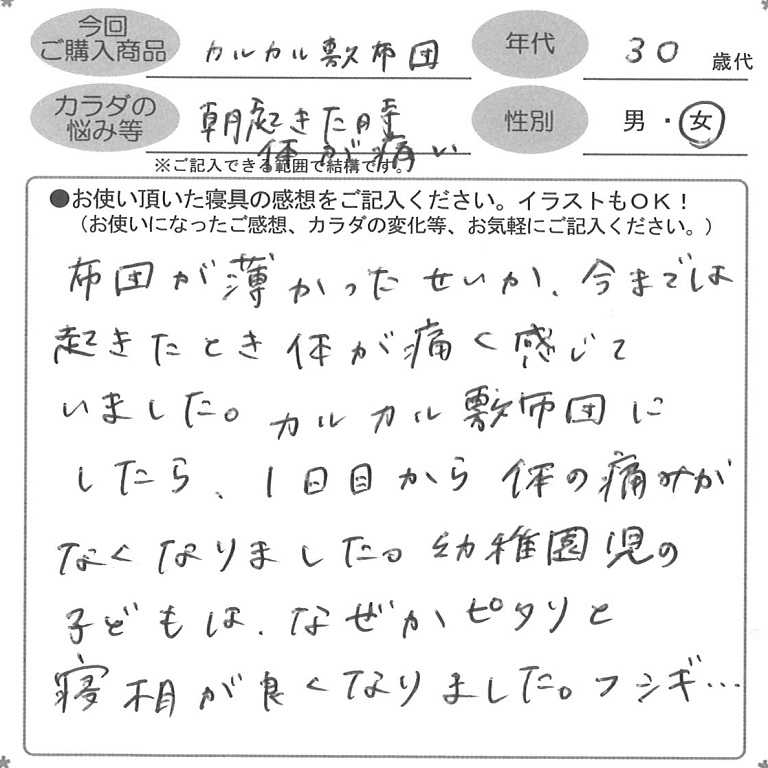 今回
ご購入商品
カルカル敷布団
年代
30 歳代
カラダの
悩み等
朝起きた時
体が痛い
性別
男・女
※ご記入できる範囲で結構です。
●お使い頂いた寝具の感想をご記入ください。イラストもOK!
(お使いになったご感想、カラダの変化等、お気軽にご記入ください。)
布団が薄かったせいか、今までは
起きたとき体が痛く感じて
いました。カルカル敷布団に
したら、1日目から体の痛みが
なくなりました。幼稚園児の
子どもは、なぜかピタリと
寝相が良くなりました。フシギ…